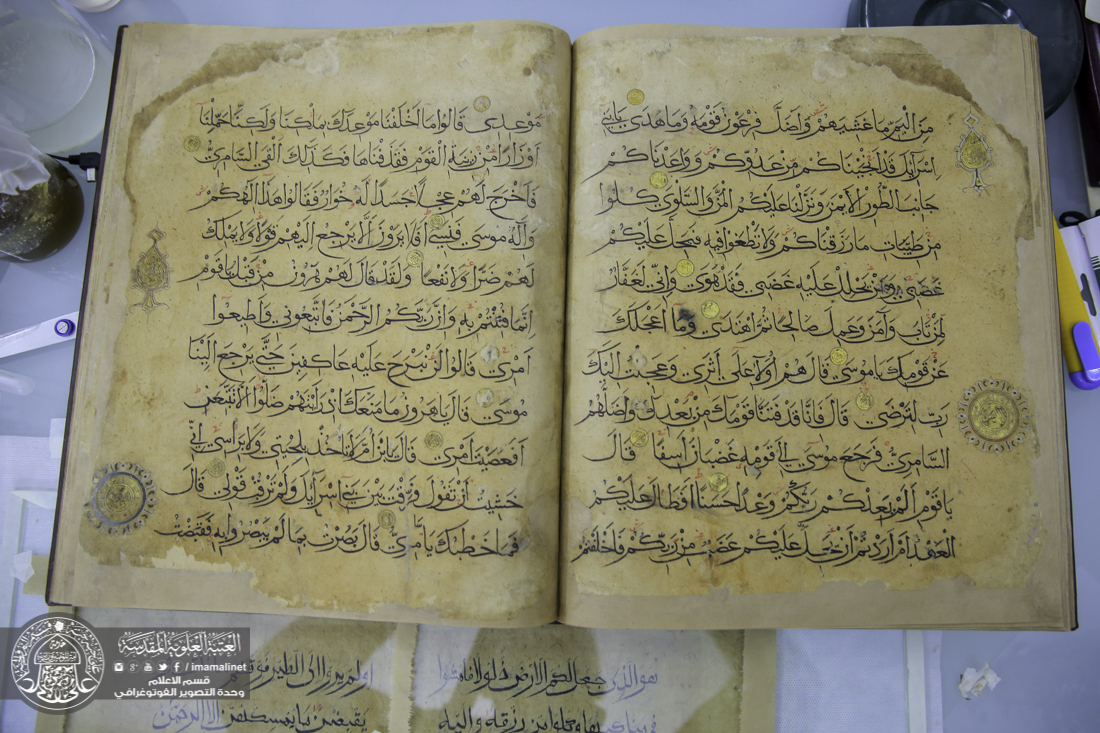 من اليم ما غشيهم واضل فرعون قومه وما هدى يا بني
اسرآئل قد انجيناكم من عدوكم وواعدناكم
جانب الطور الايمن ونزلنا عليكم المن والسلوى كلوا
من طيبات ما رزقناكم ولا تطغوا فيه فيحل عليكم
غضبي ومن يحلل عليه غضبي فقد هوى واني لغفار
لمن تاب وآمن وعمل صالحا ثم اهتدى وما اعجلك
عن قومك يا موسى قال هم اولاء على اثري وعجلت اليك
رب لترضى قال فانا قد فتنا قومك من بعدك واضلهم
السامري فرجع موسى الى قومه غضبان اسفا قال
يا قوم الم يعدكم ربكم وعدا حسنا افطال عليكم
العهد ام اردتم ان يحل عليكم غضب من ربكم فاخلفتم
موعدي قالوا ما اخلفنا موعدك بملكنا ولكنا حملنا
اوزارا من زينة القوم فقذفناها فكذلك القى السامري
فاخرج لهم عجلا جسدا له خوار فقالوا هذا الهكم
واله موسى فنسي افلا يرون الا يرجع اليهم قولا ولا يملك
لهم ضرا ولا نفعا ولقد قال لهم هرون من قبل يا قوم
انما فتنتم به وان ربكم الرحمن فاتبعوني واطيعوا
امري قالوا لن نبرح عليه عاكفين حتى يرجع الينا
موسى قال يا هرون ما منعك اذ رايتهم ضلوا الا تتبعن
افعصيت امري قال يا بن ام لا تاخذ بلحيتي ولا براسي اني
خشيت ان تقول فرقت بين بني اسرآئل ولم ترقب قولي قال
فما خطبك يا سامري قال بصرت بما لم يبصروا به فقبضت
هو الذي جعل لكم الارض ذلولا فامشوا
في مناكبها وكلوا من رزقه واليه
اولم يروا الى الطير فوقهم
يقبضن ما يمسكهن الا الرحمن
العتبة العلوية المقدسة
/ imamalinet
قسم الاعلام
وحدة التصوير الفوتوغرافي